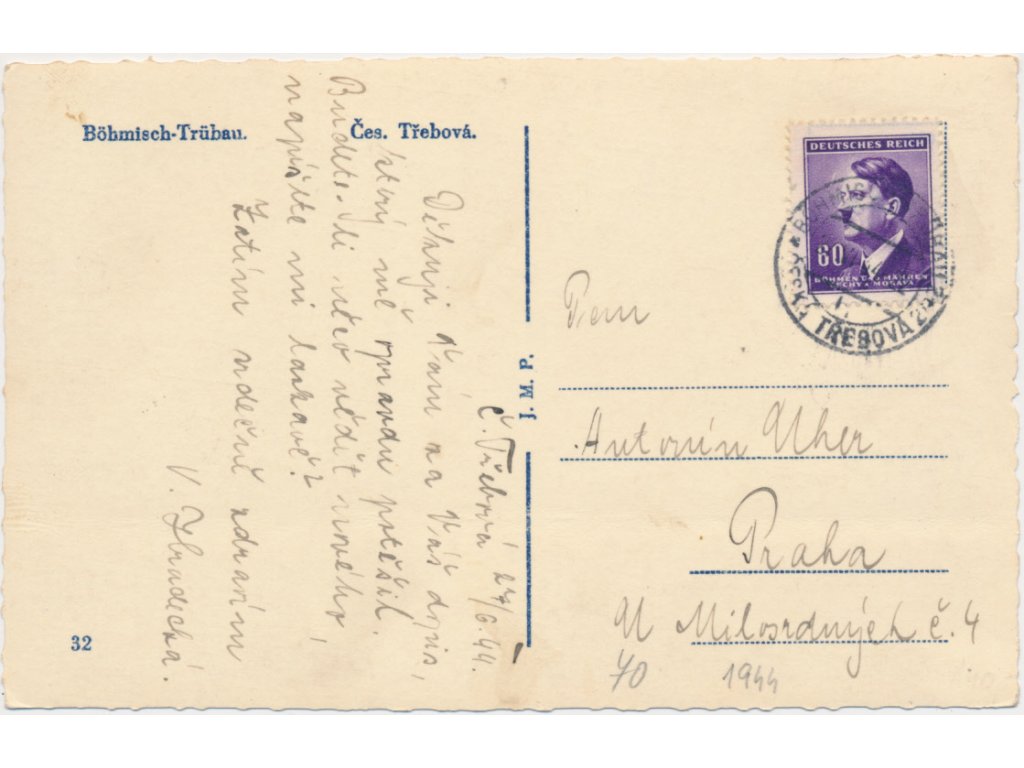 Böhmisch-Trübau. Čes. Třebová.
Č. Třebová 27/6.44.
Děkuji Vám za Váš dopis,
který mě opravdu potěšil.
Budete-li něco vědět nového,
napište mi laskavě?
Zatím vděčně zdravím
V. Hradecká.
32
J. M. P.
DEUTSCHES REICH
60
BÖHMEN UND MÄHREN
ČECHY A MORAVA
ČESKÁ TŘEBOVÁ 2
Pan
Antonín Uher
Praha
U Milosrdných č. 4
70 1944